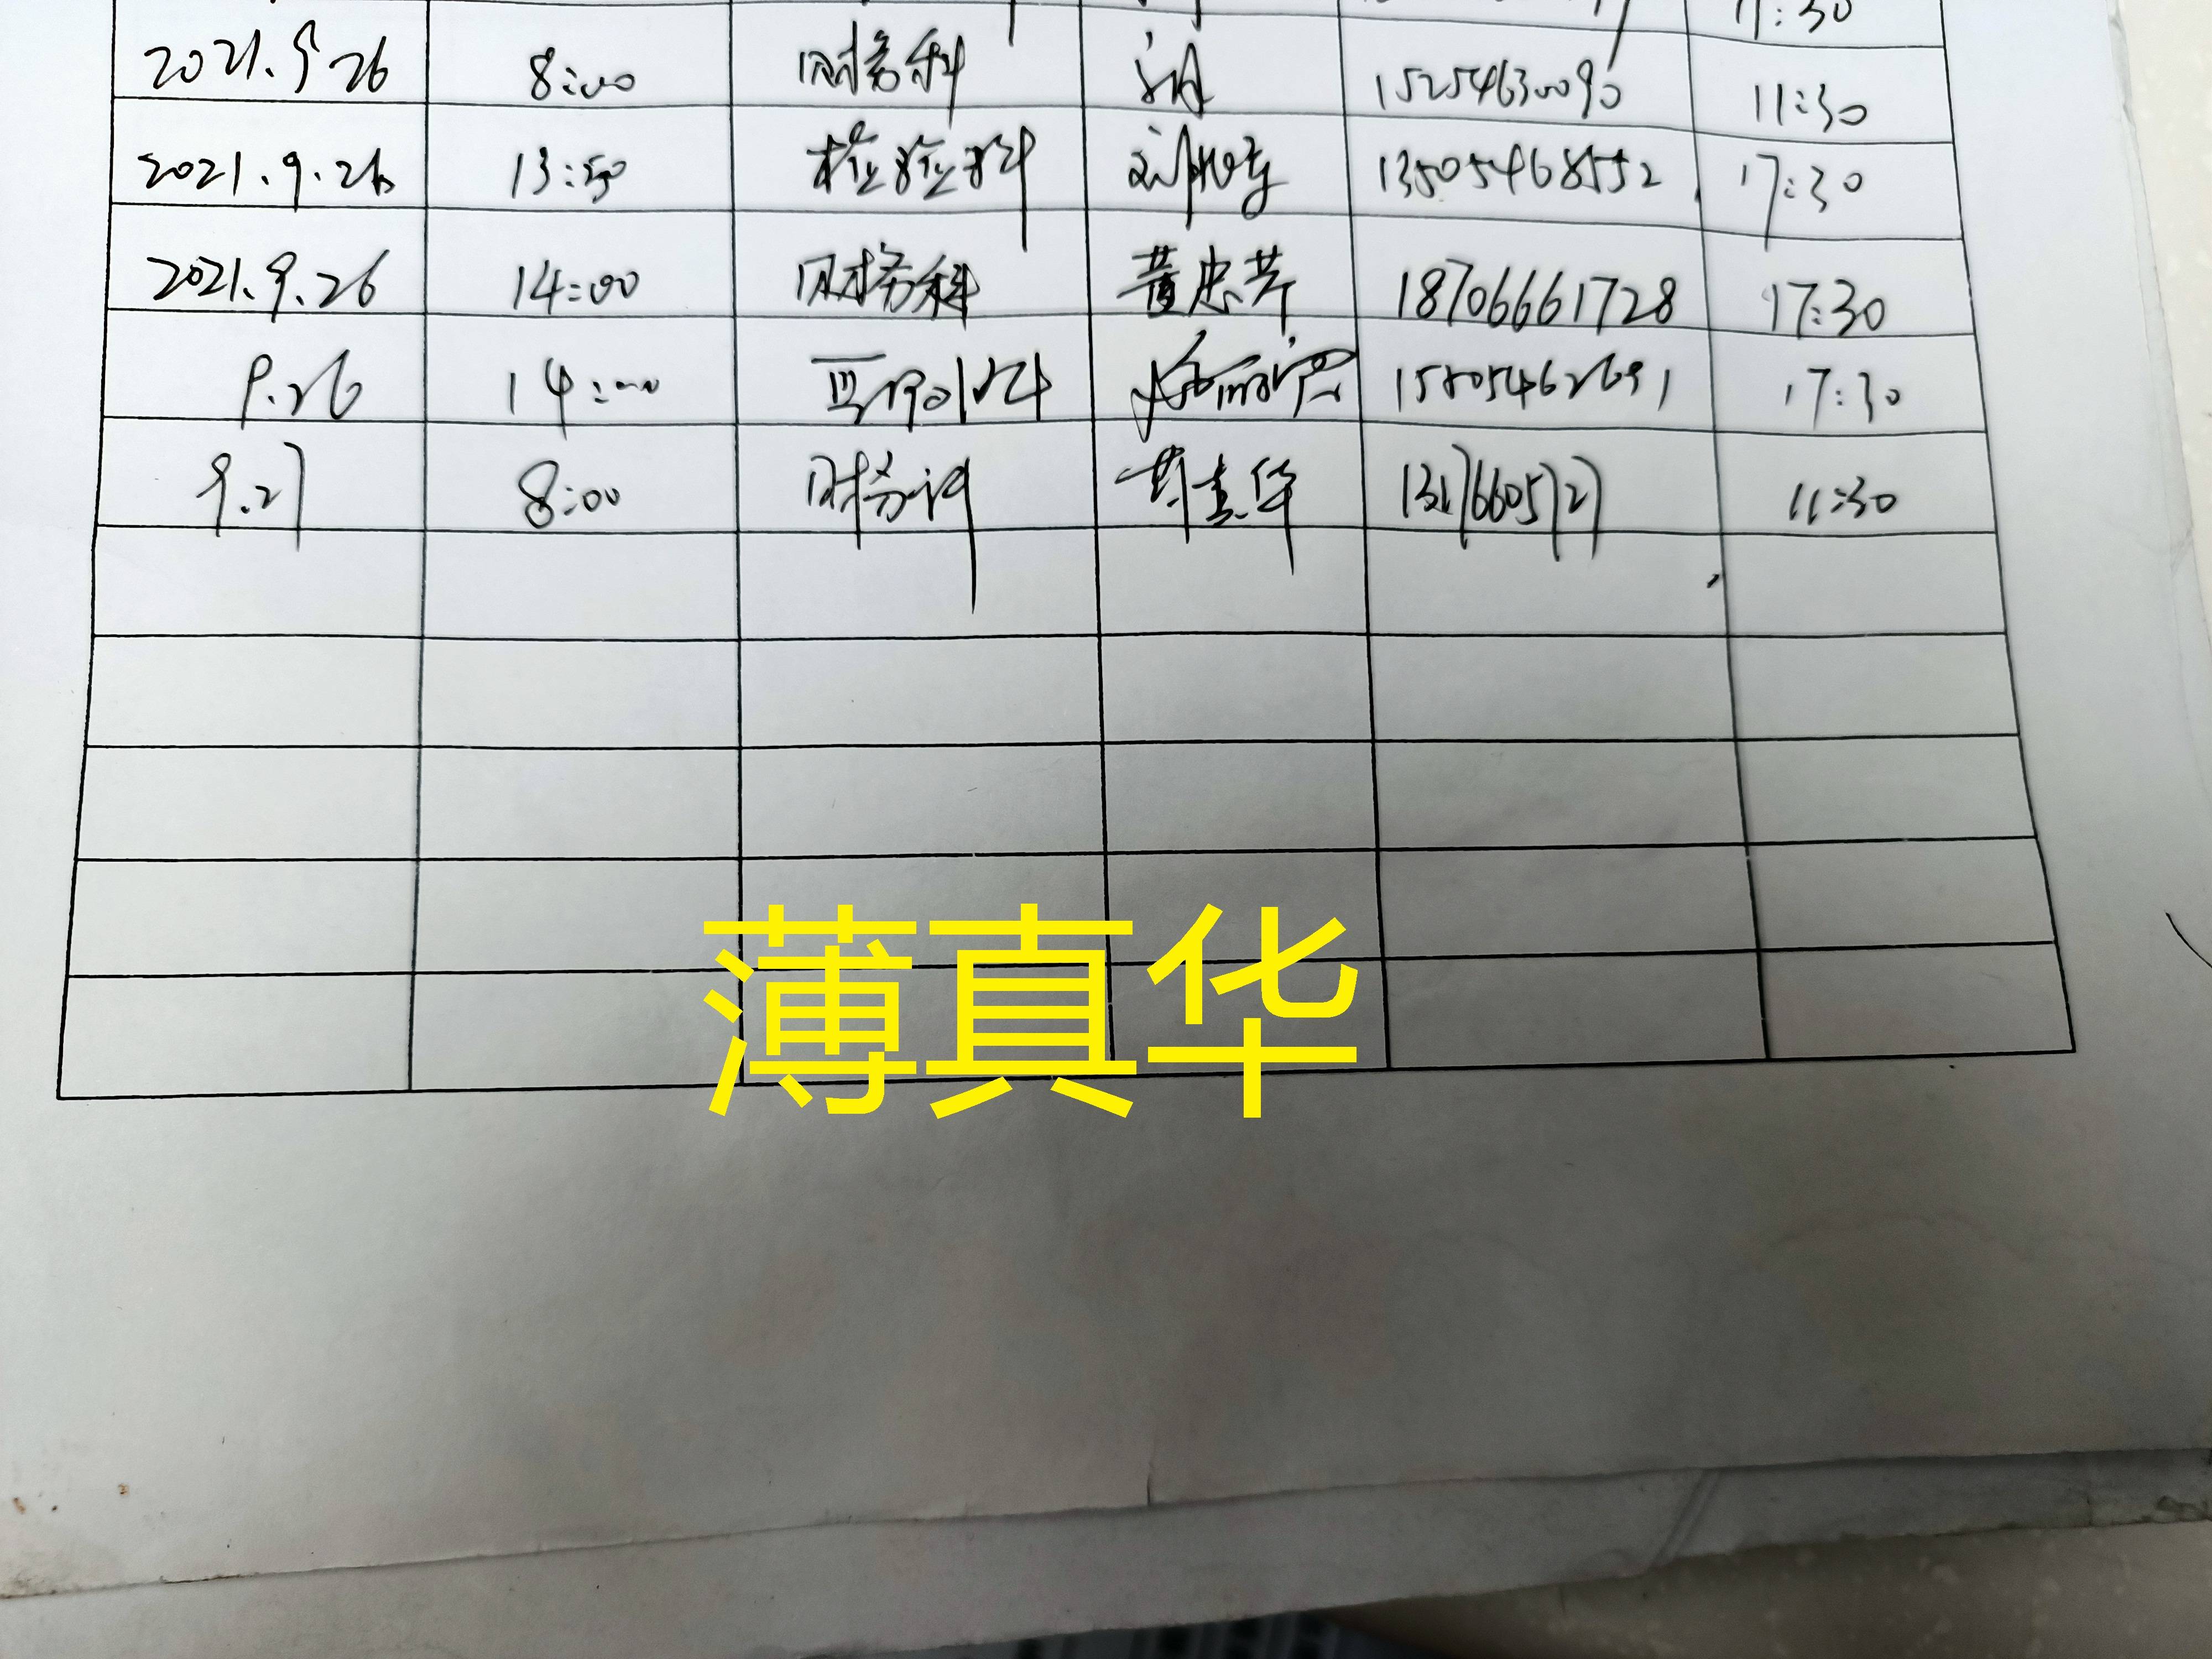 11:30
2021.9.26 8:00 财务科 15254630090 11:30
2021.9.26 13:50 检验科 13505468552 17:30
2021.9.26 14:00 财务科 黄忠芹 18706661728 17:30
9.26 14:00 15805462691 17:30
9.27 8:00 财务科 薄真华 13176605727 11:30
薄真华